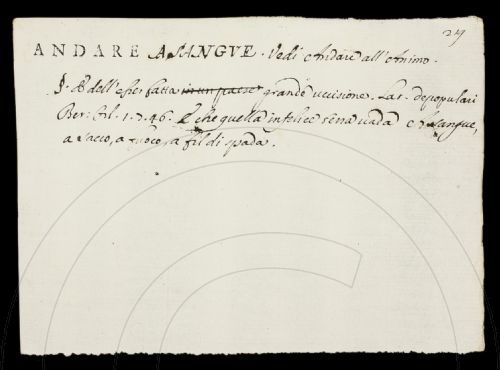 24
ANDARE A SANGUE. Vedi Andare all'Animo.
dell'esser fatta in un paese grande uccisione. Lat. depopulari
Ber: Orl. 1. 7. 46. E che quella infelice terra vada
a sacco, a fuoco, a fil di spada.